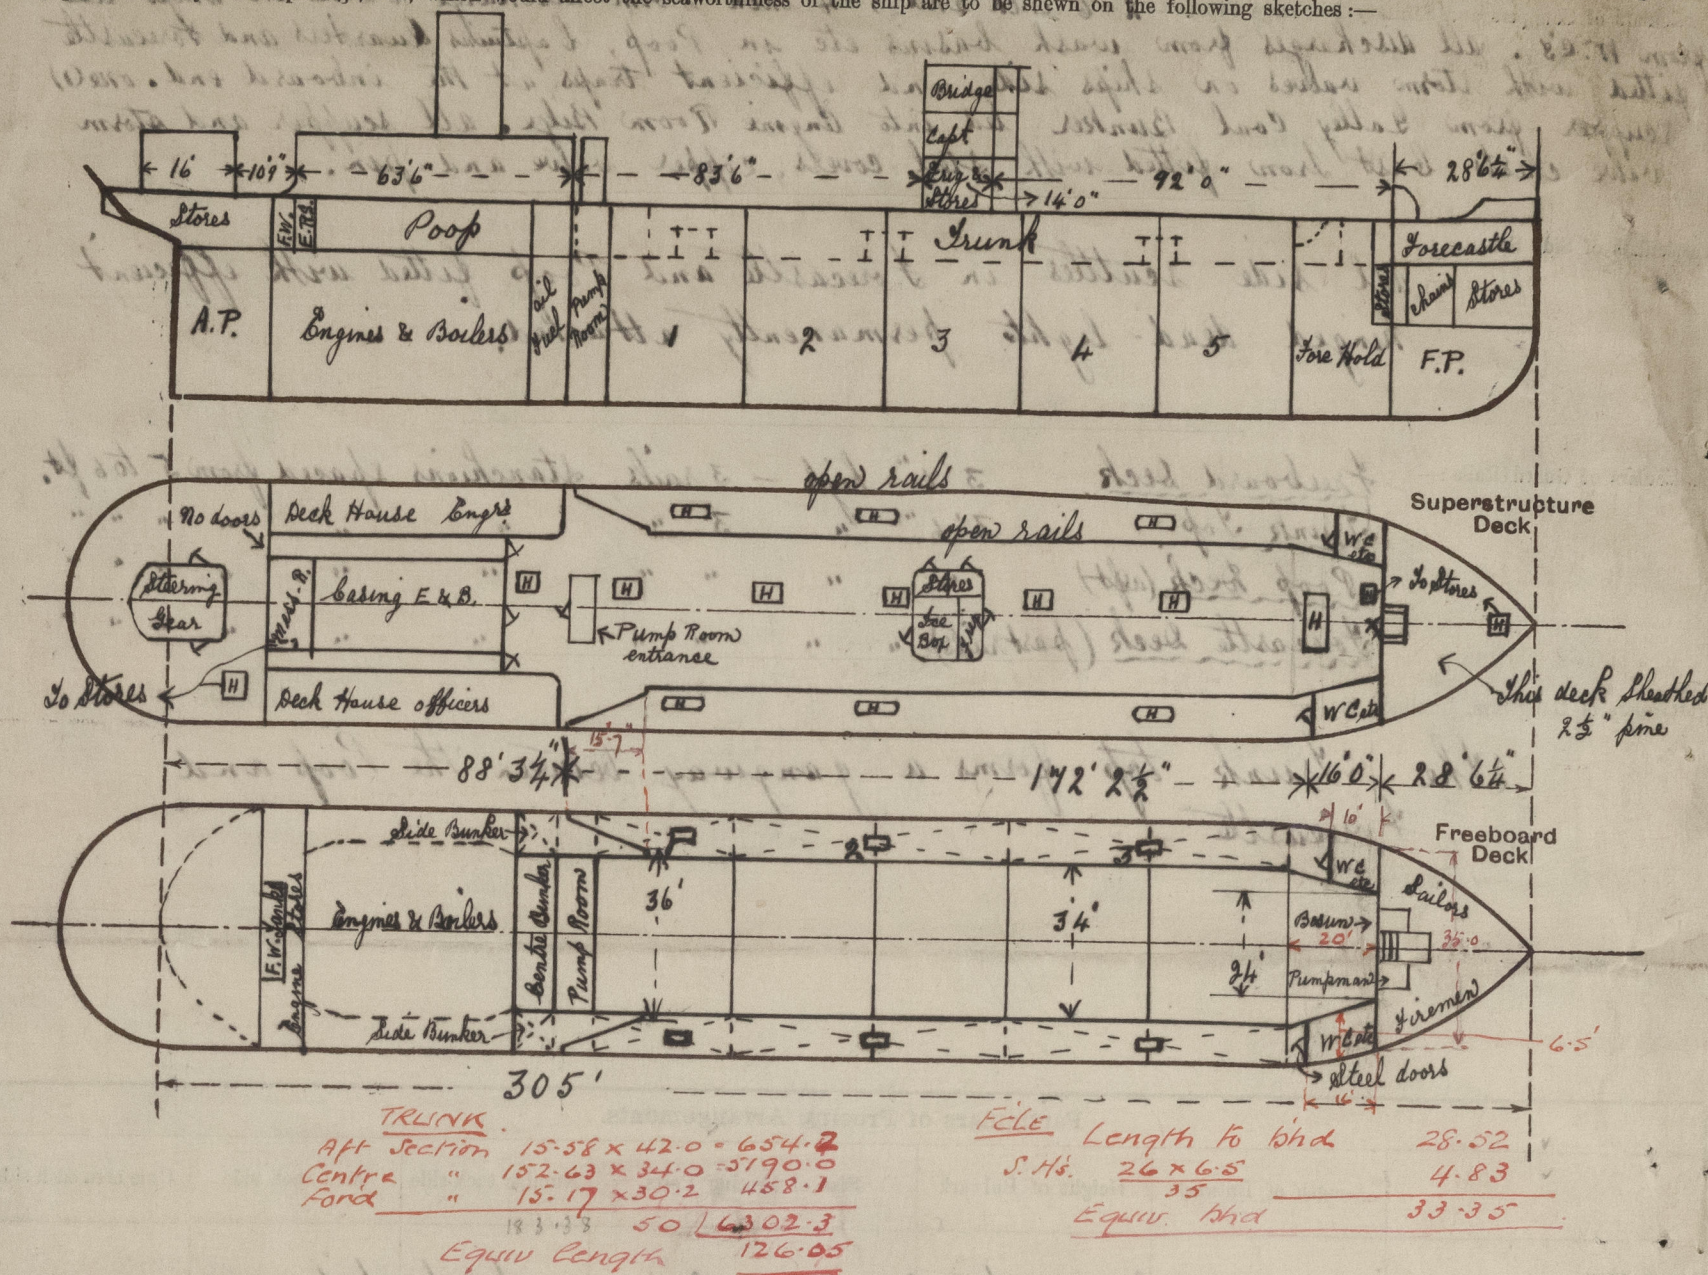 the seaworthiness of the ship are to be shewn on the following sketches :—
Bridge
Capt
Stores
16'
10'9"
63'6"
83'6"
14'0"
92'0"
28'6¼"
Stores
F.W.
E.R.S.
Poop
Trunk
Forecastle
A.P.
Engines & Boilers
Oil Fuel
Pump Room
1
2
3
4
5
Fore Hold
Stores
Chains
Stores
F.P.
open rails
Superstructure
Deck
No doors
Deck House Engrs
H
H
H
open rails
W C
etc
Steering
Gear
Mess. R.
Casing E & B.
H
H
H
H
Stores
Ice
Box
H
H
H
H
To Stores
H
Pump Room
entrance
To Stores
H
Deck House officers
H
H
H
W C etc
This deck Sheathed
2½" pine
15'-7"
88' 3¼"
172' 2½"
16'0"
28' 6¼"
10'
Freeboard
Deck
Side Bunker
2
3
W C
etc
Sailors
F.W. Tanks
Engine Stores
Engines & Boilers
Centre Bunker
Pump Room
36'
34'
24'
Bosun
20'
Pumpman
35.0
Firemen
Side Bunker
W C etc
6.5'
Steel doors
16'
305'
TRUNK
Aft Section 15.58 x 42.0 = 654.2
Centre " 152.63 x 34.0 = 5190.0
Ford " 15.17 x 30.2 458.1
183.38 50 6302.3
Equiv length 126.05
FCLE Length to bhd 28.52
S.Hs. 26 x 6.5 4.83
35
Equiv. bhd 33.35